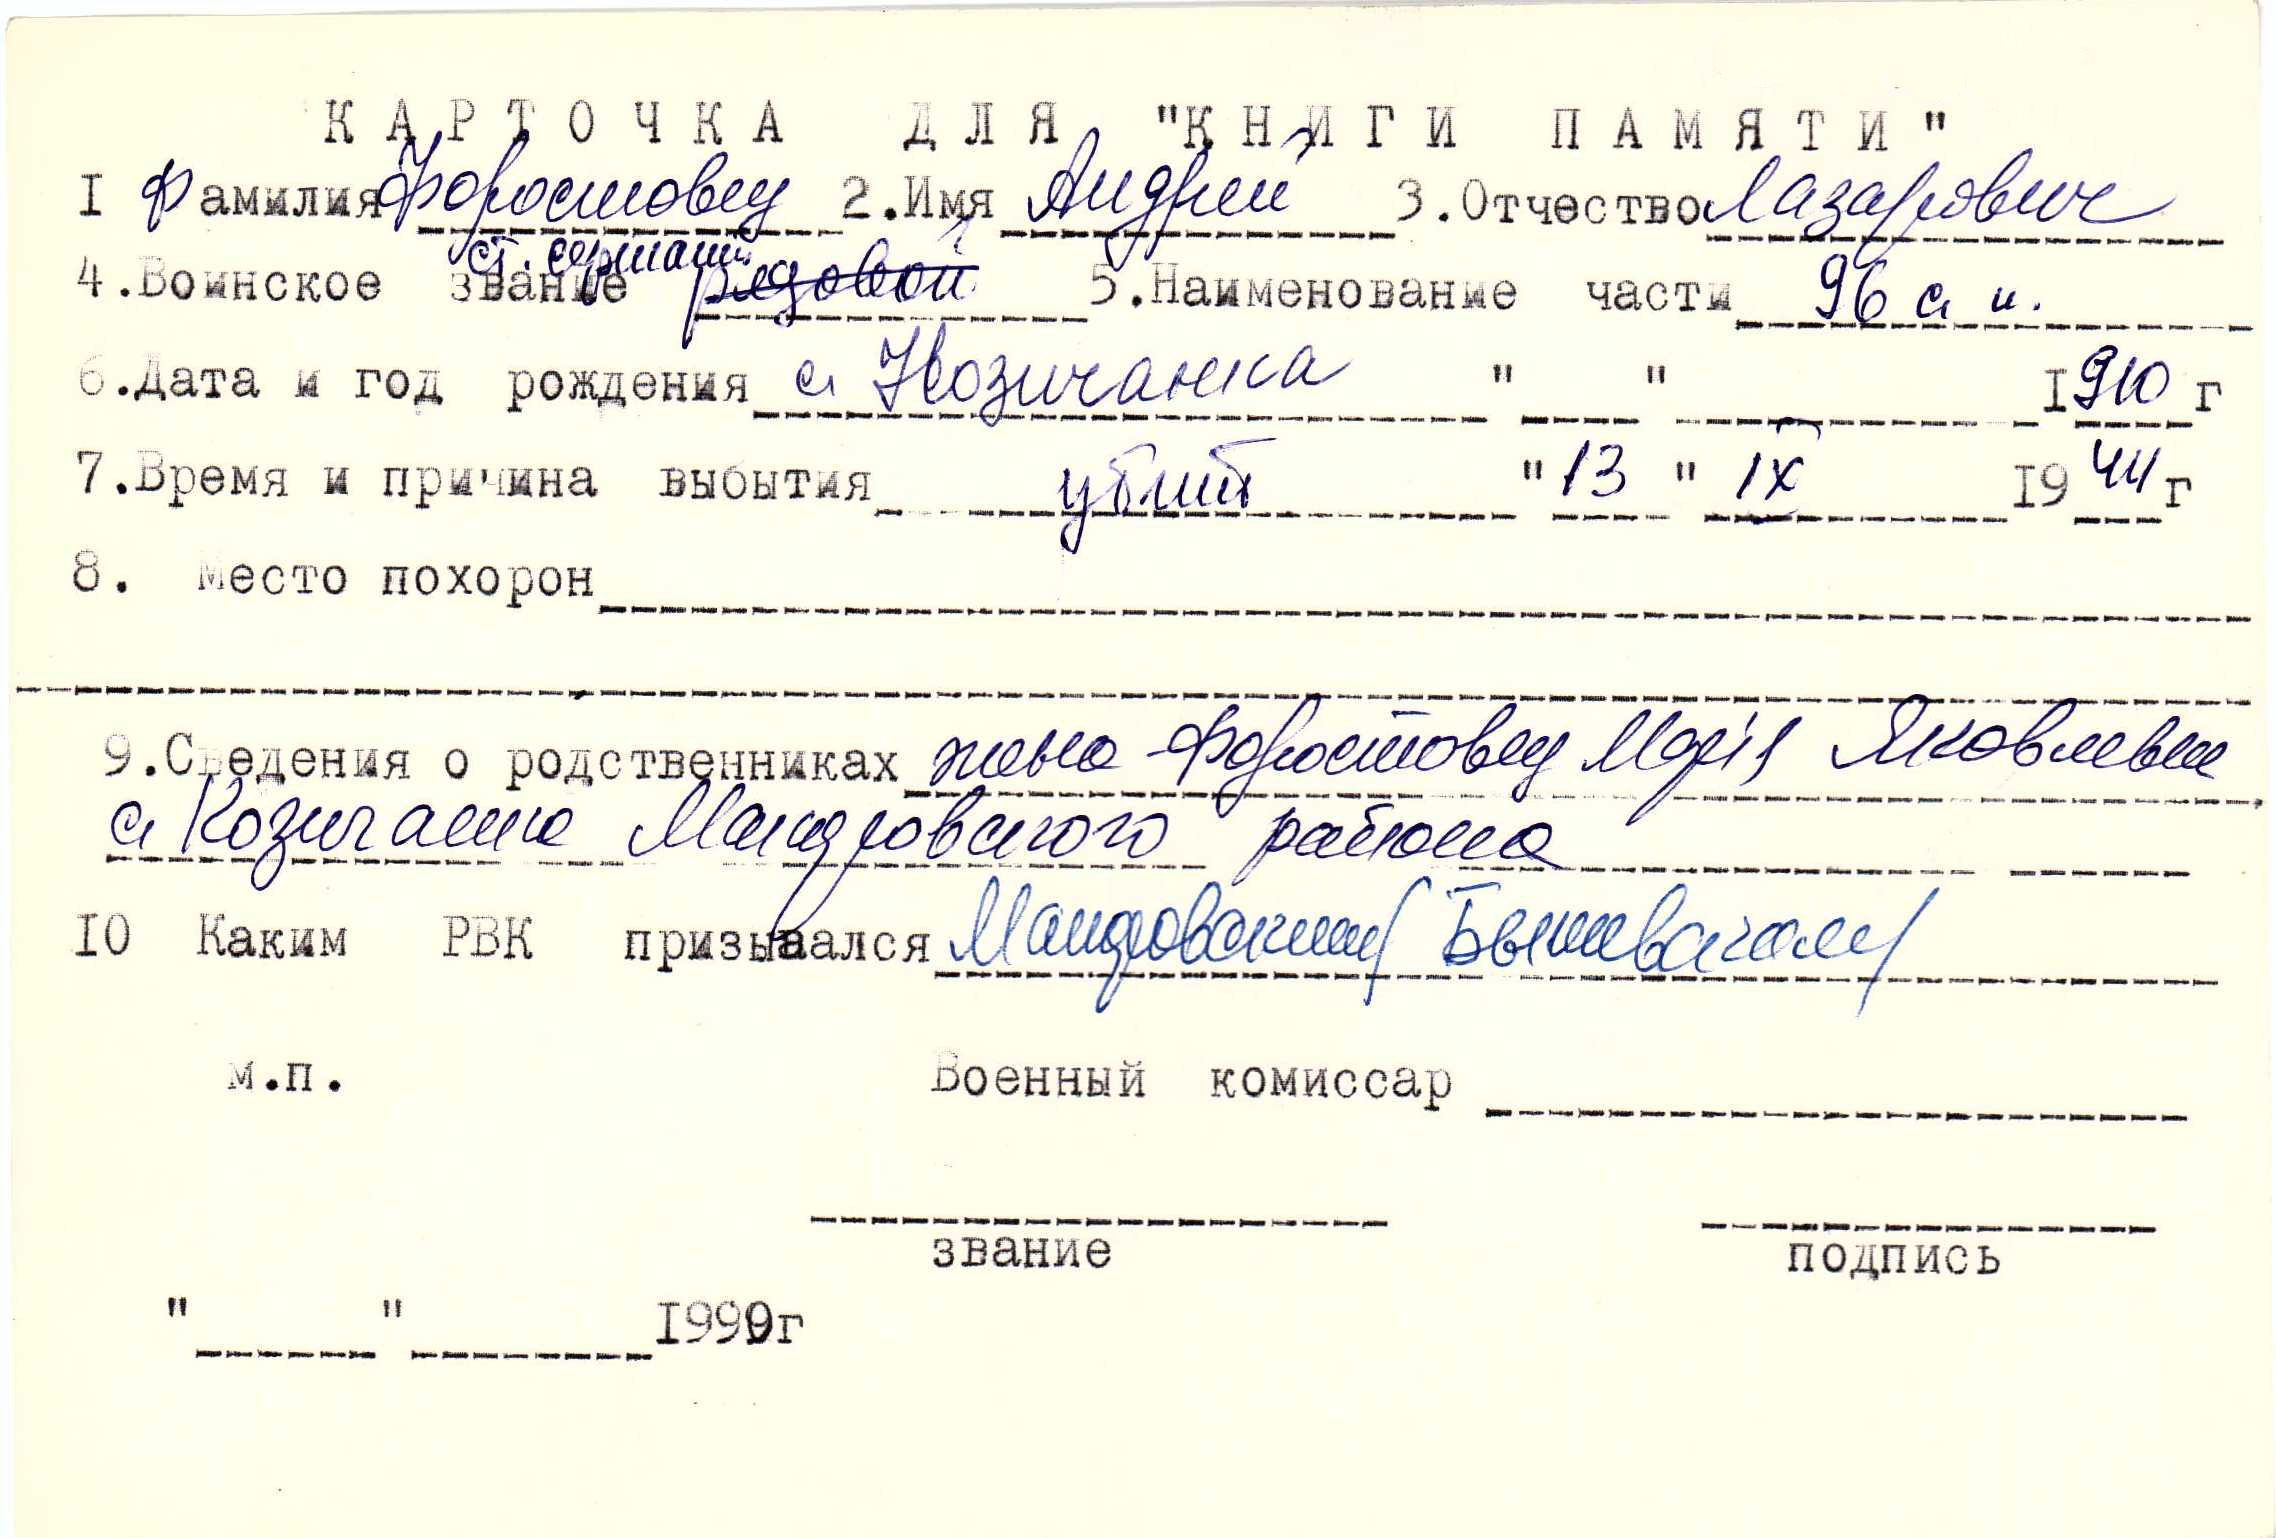 КАРТОЧКА ДЛЯ "КНИГИ ПАМЯТИ"
I Фамилия Форостовец 2.Имя Андрей 3.Отчество Лазарович
ст. сержант
4.Воинское звание рядовой 5.Наименование части 96 с п.
6.Дата и год рождения с Козичанка " " 1910 г
7.Время и причина выбытия убит "13" IX 1944 г
8. Место похорон
9.Сведения о родственниках жена Форостовец Марія Яковлевна
с Козичанка Макаровского района
10 Каким РВК призывался Макаровским/
м.п. Военный комиссар
звание подпись
" " 1990г